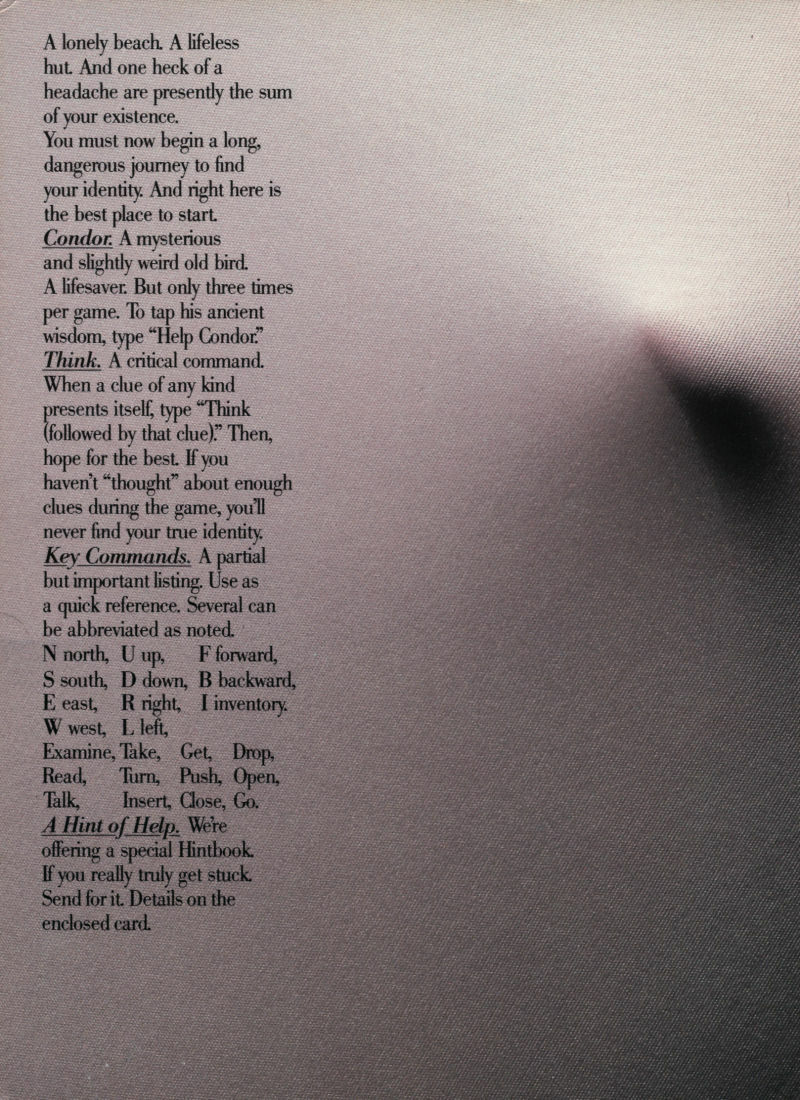 A lonely beach. A lifeless
hut. And one heck of a
headache are presently the sum
of your existence.
You must now begin a long,
dangerous journey to find
your identity. And right here is
the best place to start.
Condor. A mysterious
and slightly weird old bird.
A lifesaver. But only three times
per game. To tap his ancient
wisdom, type “Help Condor.”
Think. A critical command.
When a clue of any kind
presents itself, type “Think
(followed by that clue).” Then,
hope for the best. If you
haven’t “thought” about enough
clues during the game, you’ll
never find your true identity.
Key Commands. A partial
but important listing. Use as
a quick reference. Several can
be abbreviated as noted.
N north, U up, F forward,
S south, D down, B backward,
E east, R right, I inventory.
W west, L left,
Examine, Take, Get, Drop,
Read, Turn, Push, Open,
Talk, Insert, Close, Go.
A Hint of Help. We’re
offering a special Hintbook.
If you really truly get stuck.
Send for it. Details on the
enclosed card.